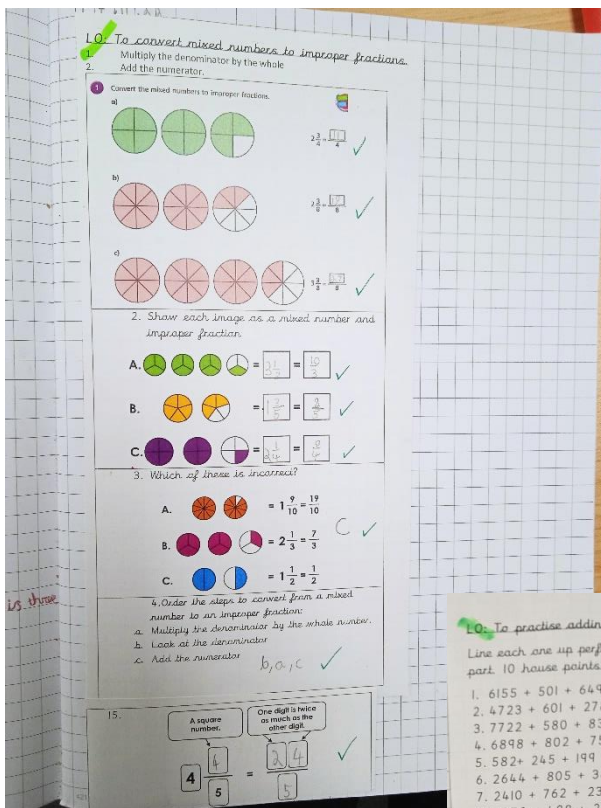 LO: To convert mixed numbers to improper fractions.
1. Multiply the denominator by the whole
2. Add the numerator.
1 Convert the mixed numbers to improper fractions.
a)
2 3/4 = 11/4
b)
2 3/8 = /8
c)
3 3/8 = /8
2. Show each image as a mixed number and
improper fraction
A. = 3 1/3 = 10/3
B. = 1 3/5 = 8/5
C. = 2 1/4 = 9/4
3. Which of these is incorrect?
A. = 1 9/10 = 19/10
B. = 2 1/3 = 7/3
C
C. = 1 1/2 = 1/2
4. Order the steps to convert from a mixed
number to an improper fraction:
a. Multiply the denominator by the whole number.
b. Look at the denominator
c. Add the numerator
b, a, c
15.
A square
number.
One digit is twice
as much as the
other digit.
4 4/5 = 24/5
is three
LO: To practise addin
Line each one up perf
part. 10 house points
1. 6155 + 501 + 649
2. 4723 + 601 + 27
3. 7722 + 580 + 83
4. 6898 + 802 + 75
5. 582+ 245 + 199
6. 2644 + 805 + 3
7. 2410 + 762 + 23